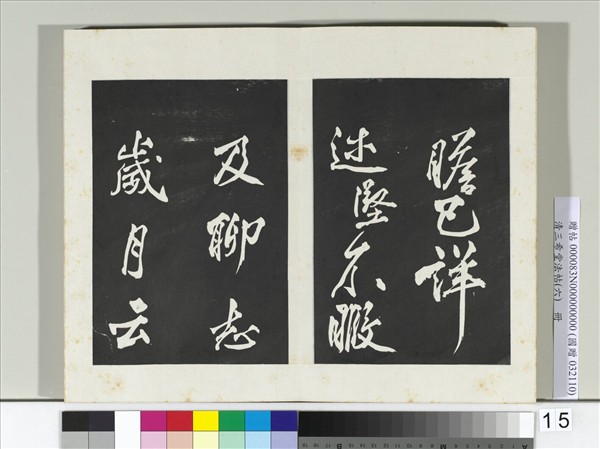 瞻已詳
述堅不暇
及聊志
歲月云
贈帖 000083N000000000 (國贈 032110)
清三希堂法帖(六) 冊
15